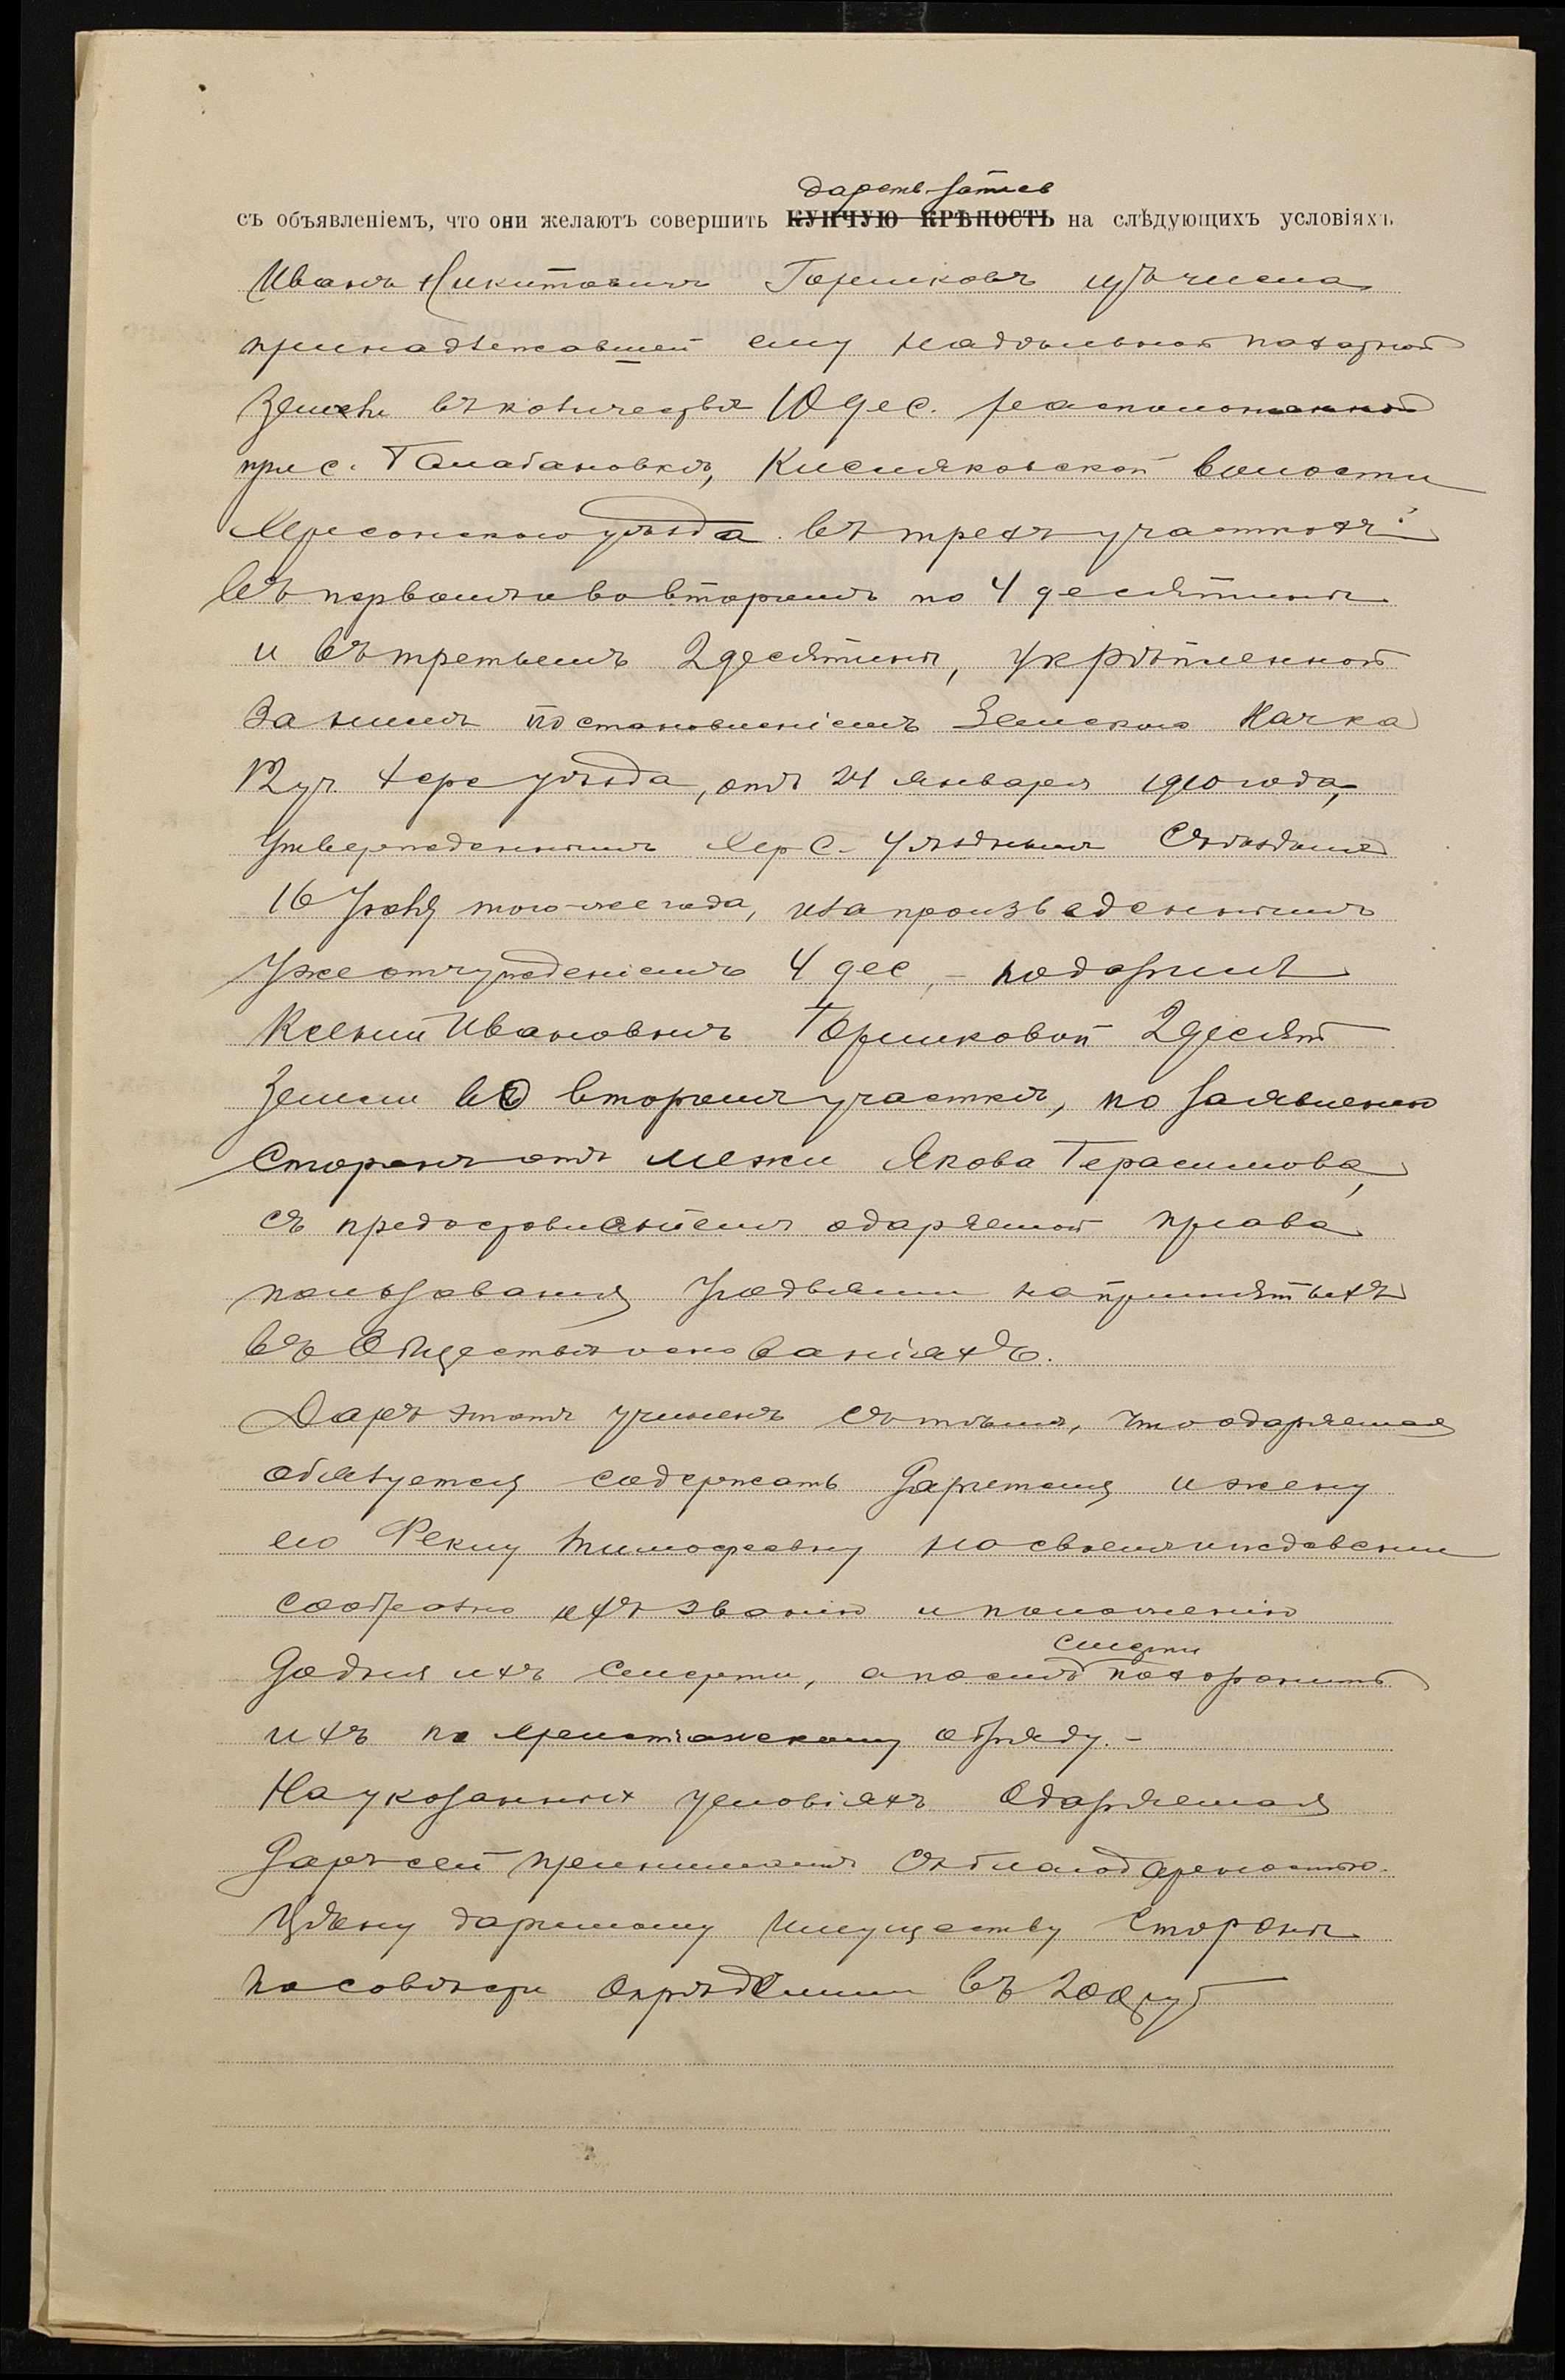 дарств. запись
съ объявленіемъ, что они желаютъ совершить КУПЧУЮ КРѢПОСТЬ на слѣдующихъ условіяхъ
Иванъ Никитовичъ Горшковъ изъ числа
принадлежавшей ему надѣльной пахатной
земли въ количествѣ 10 дес. расположенной
при с. Балабановкѣ, Кисляковской волости
Херсонскаго уѣзда въ трехъ участкахъ:
въ первомъ и во второмъ по 4 десятины
и въ третьемъ 2 десятины, укрѣпленной
за нимъ постановленіемъ Земскаго Начка
12 уч. Херс уѣзда, отъ 24 Января 1910 года,
утвержденнымъ Херс. Уѣзднымъ Съѣздомъ
16 Іюня того-же года, и за произведеннымъ
уже отчужденіемъ 4 дес, – подарилъ
Ксеніи Ивановнѣ Горшковой 2 десят
земли во второмъ участкѣ, по заявленію
сторонъ отъ межи Якова Герасимова,
съ предоставленіемъ одаряемой права
пользованія угодьями на принятыхъ
въ Обществѣ основаніяхъ.
Даръ этотъ учиненъ съ тѣмъ, что одаряемая
обязуется содержать дарителя и жену
его Феклу Тимофеевну на своемъ иждивеніи
сообразно ихъ званію и положенію
смерти
до дня ихъ смерти, а послѣ похоронить
ихъ по христіанскому обряду. –
На указанныхъ условіяхъ Одаряемая
даръ сей принимаетъ съ благодарностью.
Цѣну даримому имуществу стороны
по совѣсти опредѣлили въ 200 руб